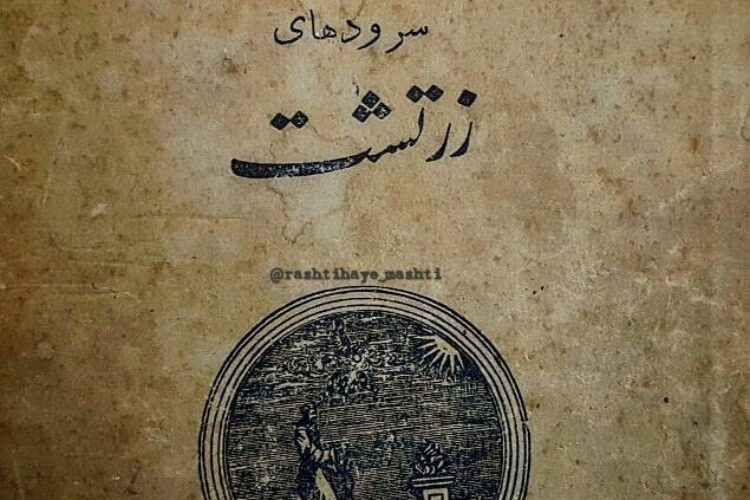 سرودهای
زرتشت
@rashtihaye_mashti